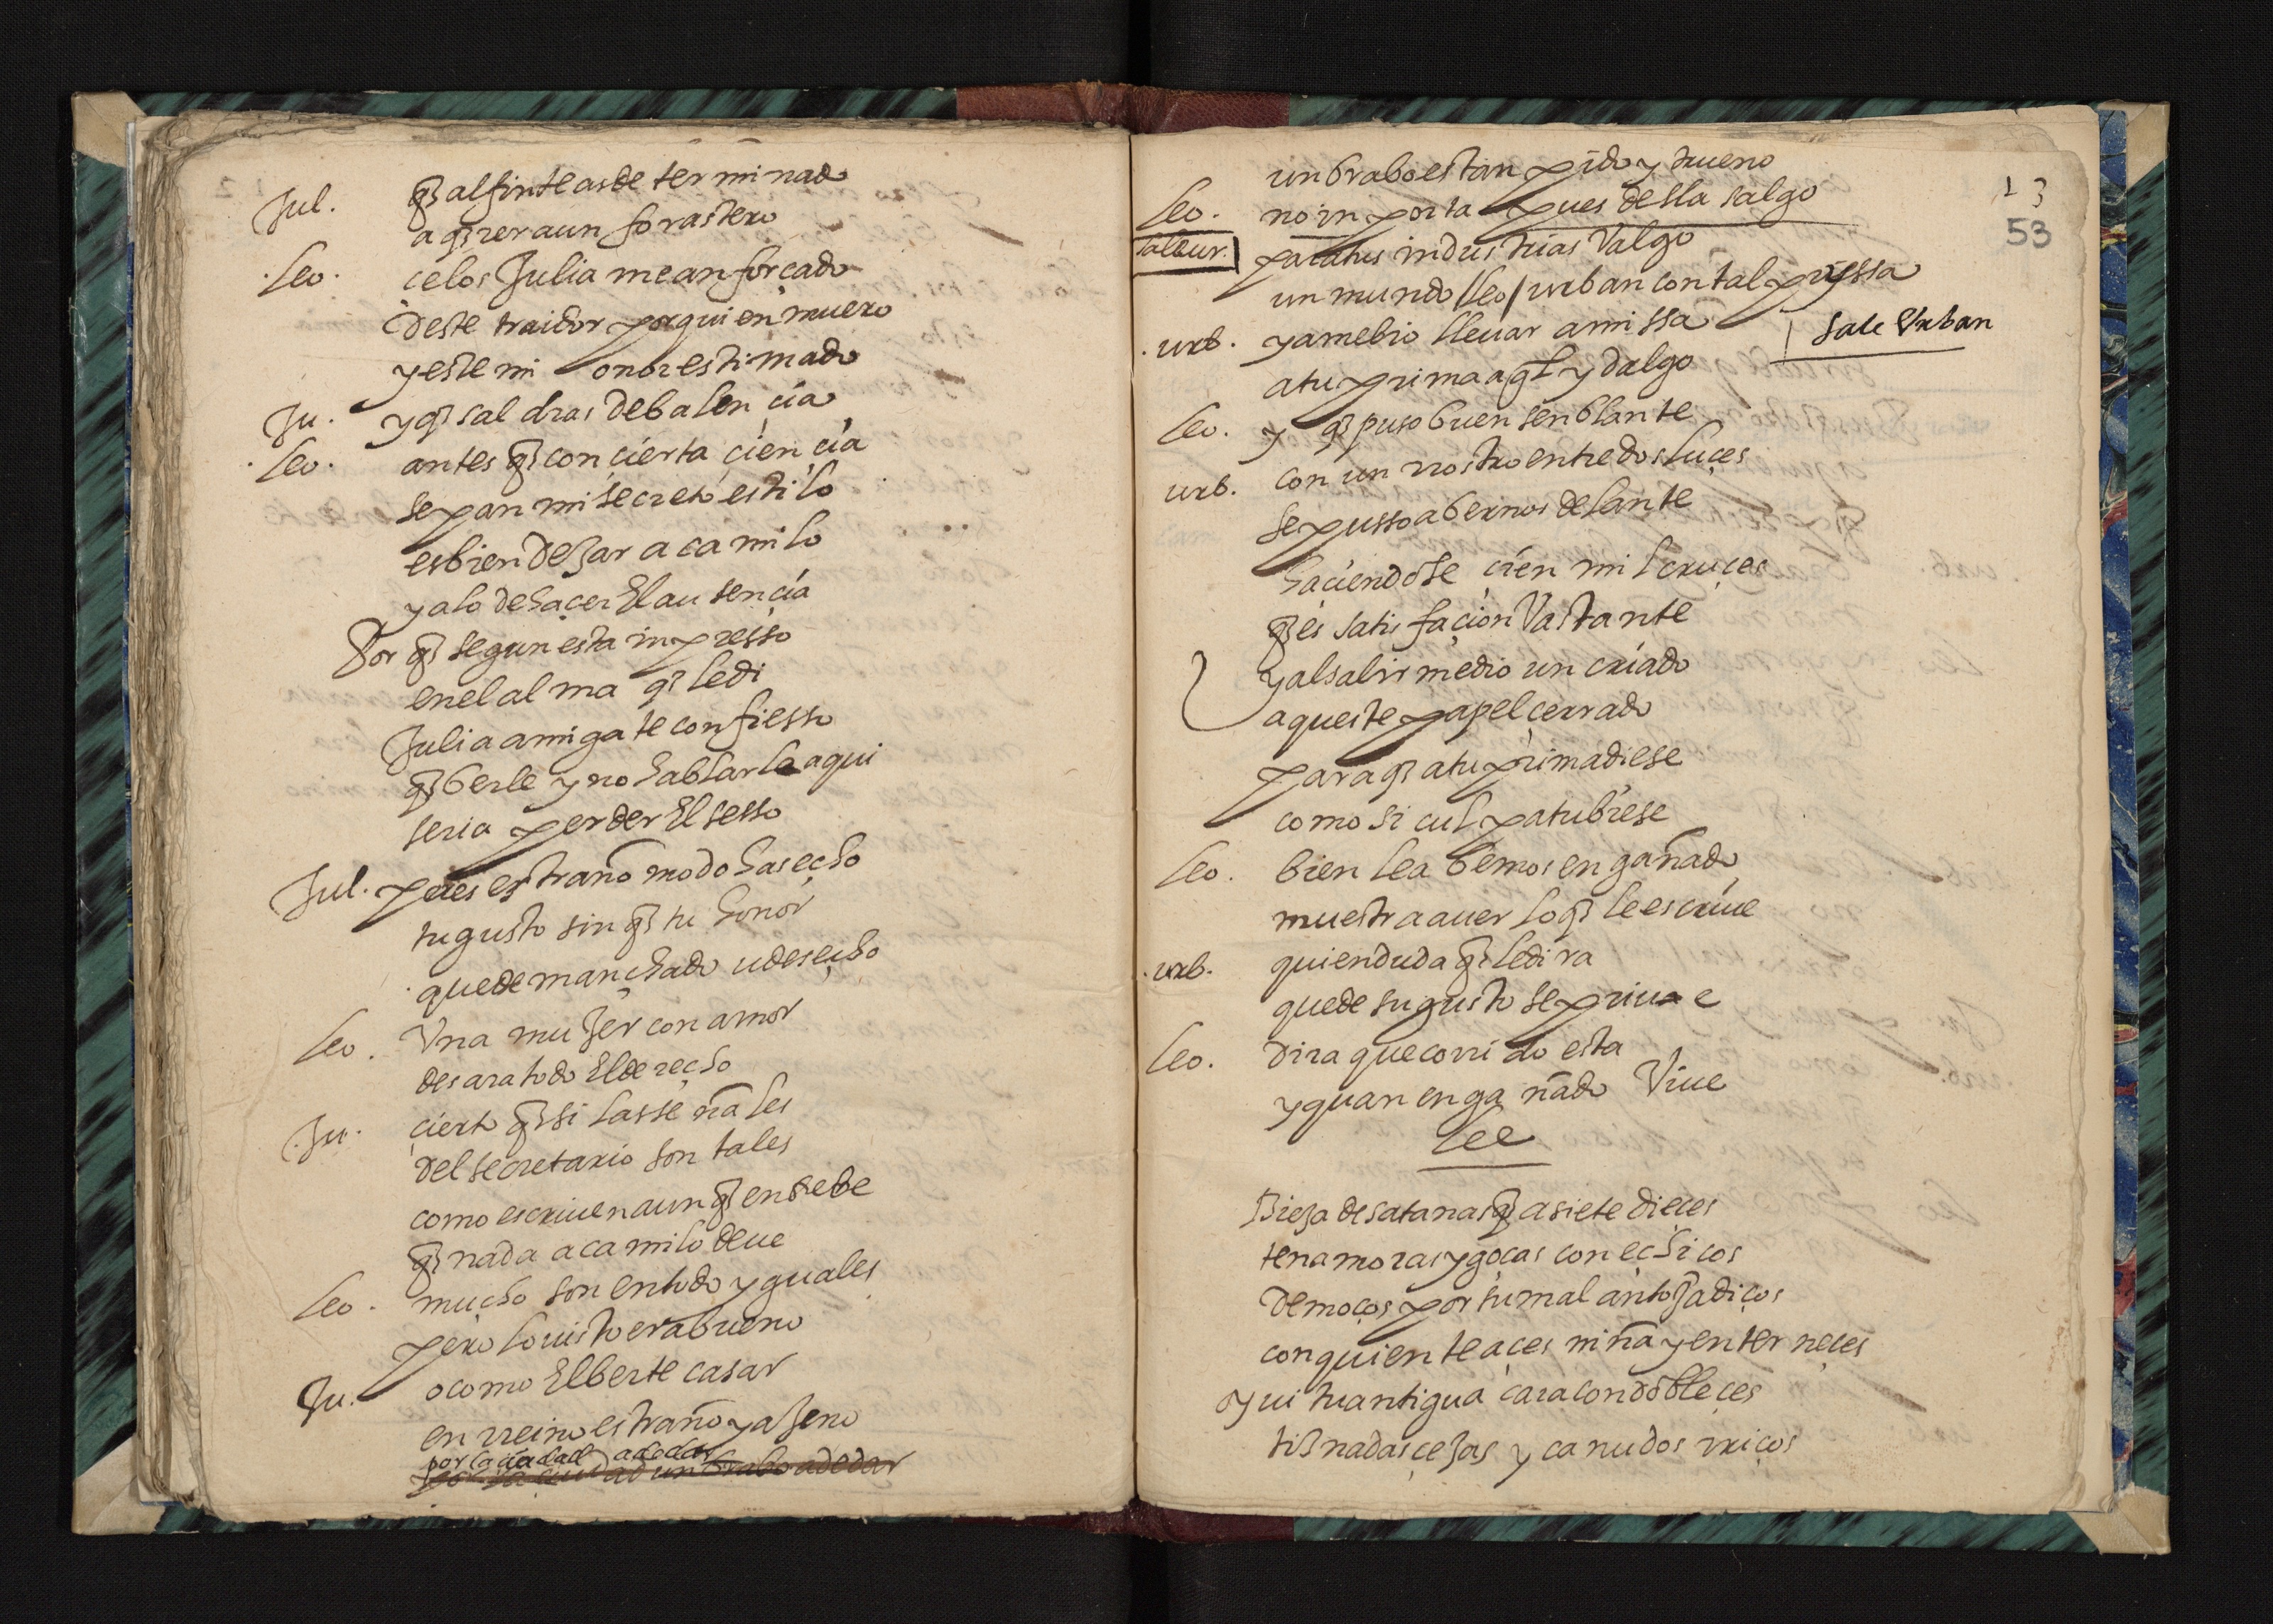 Jul. q̃ al fin te as determinado
a q̃rer a un forastero
.Leo. celos Julia me an forçado
deste traidor por quien muero
y este mi onor estimado
Ju. y q̃ saldras de balençia
.Leo. antes q̃ con çierta çiençia
sepan mi secreto estilo
es bien dejar a camilo
y a lo de haçer El ausençia
Por q̃ segun esta inpresso
en el alma q̃ le di
Julia amiga te confiesso
q̃ berle y no hablarle aqui
seria perder El sesso
Jul. pues estraño modo has echo
tu gusto sin q̃ tu honor
quede manchado u desecho
Leo. Una mujer con amor
desara todo El derecho
.Ju. çierto q̃ si las señales
del secretario son tales
como escriuen aunq̃ en
q̃ nada a camilo deue
Leo. mucho son en todo yguales
pero lo uisto era bueno
Ju. o como El berte casar
en rreino estraño y ajeno
por la çiudad a de dar
por la çiudad un brabo a de dar
13
53
un brabo estanpido y trueno
Leo. no inporta pues della salgo
sale ur. para tus industrias Valgo
un mundo /Leo/ urban con tal priessa
.urb. ya me bio lleuar a missa
sale Urban
a tu prima aq̃l ydalgo
Leo. y q̃ puso buen senblante
urb. con un rrostro entre dos luçes
se pusso a bernos delante
haçiendose çien mil cruçes
q̃ es satisfaçion Vastante
y al salir me dio un criado
aqueste papel çerrado
para q̃ a tu prima diese
como si culpa tubiese
Leo. bien le abemos engañado
muestra a uer lo q̃ le escriue
.urb. quien duda q̃ le dira
que de su gusto se priue
Leo. dira que corrido esta
y quan engañado Viue
Lee
Bieja de satanas q̃ a siete dieces
te namoras y goças con echiços
de moços por su mal antojadiços
con quien te açes niña y enterneçes
yui tu antigua cara con dobleçes
tiznadas çejas y canudos rriços